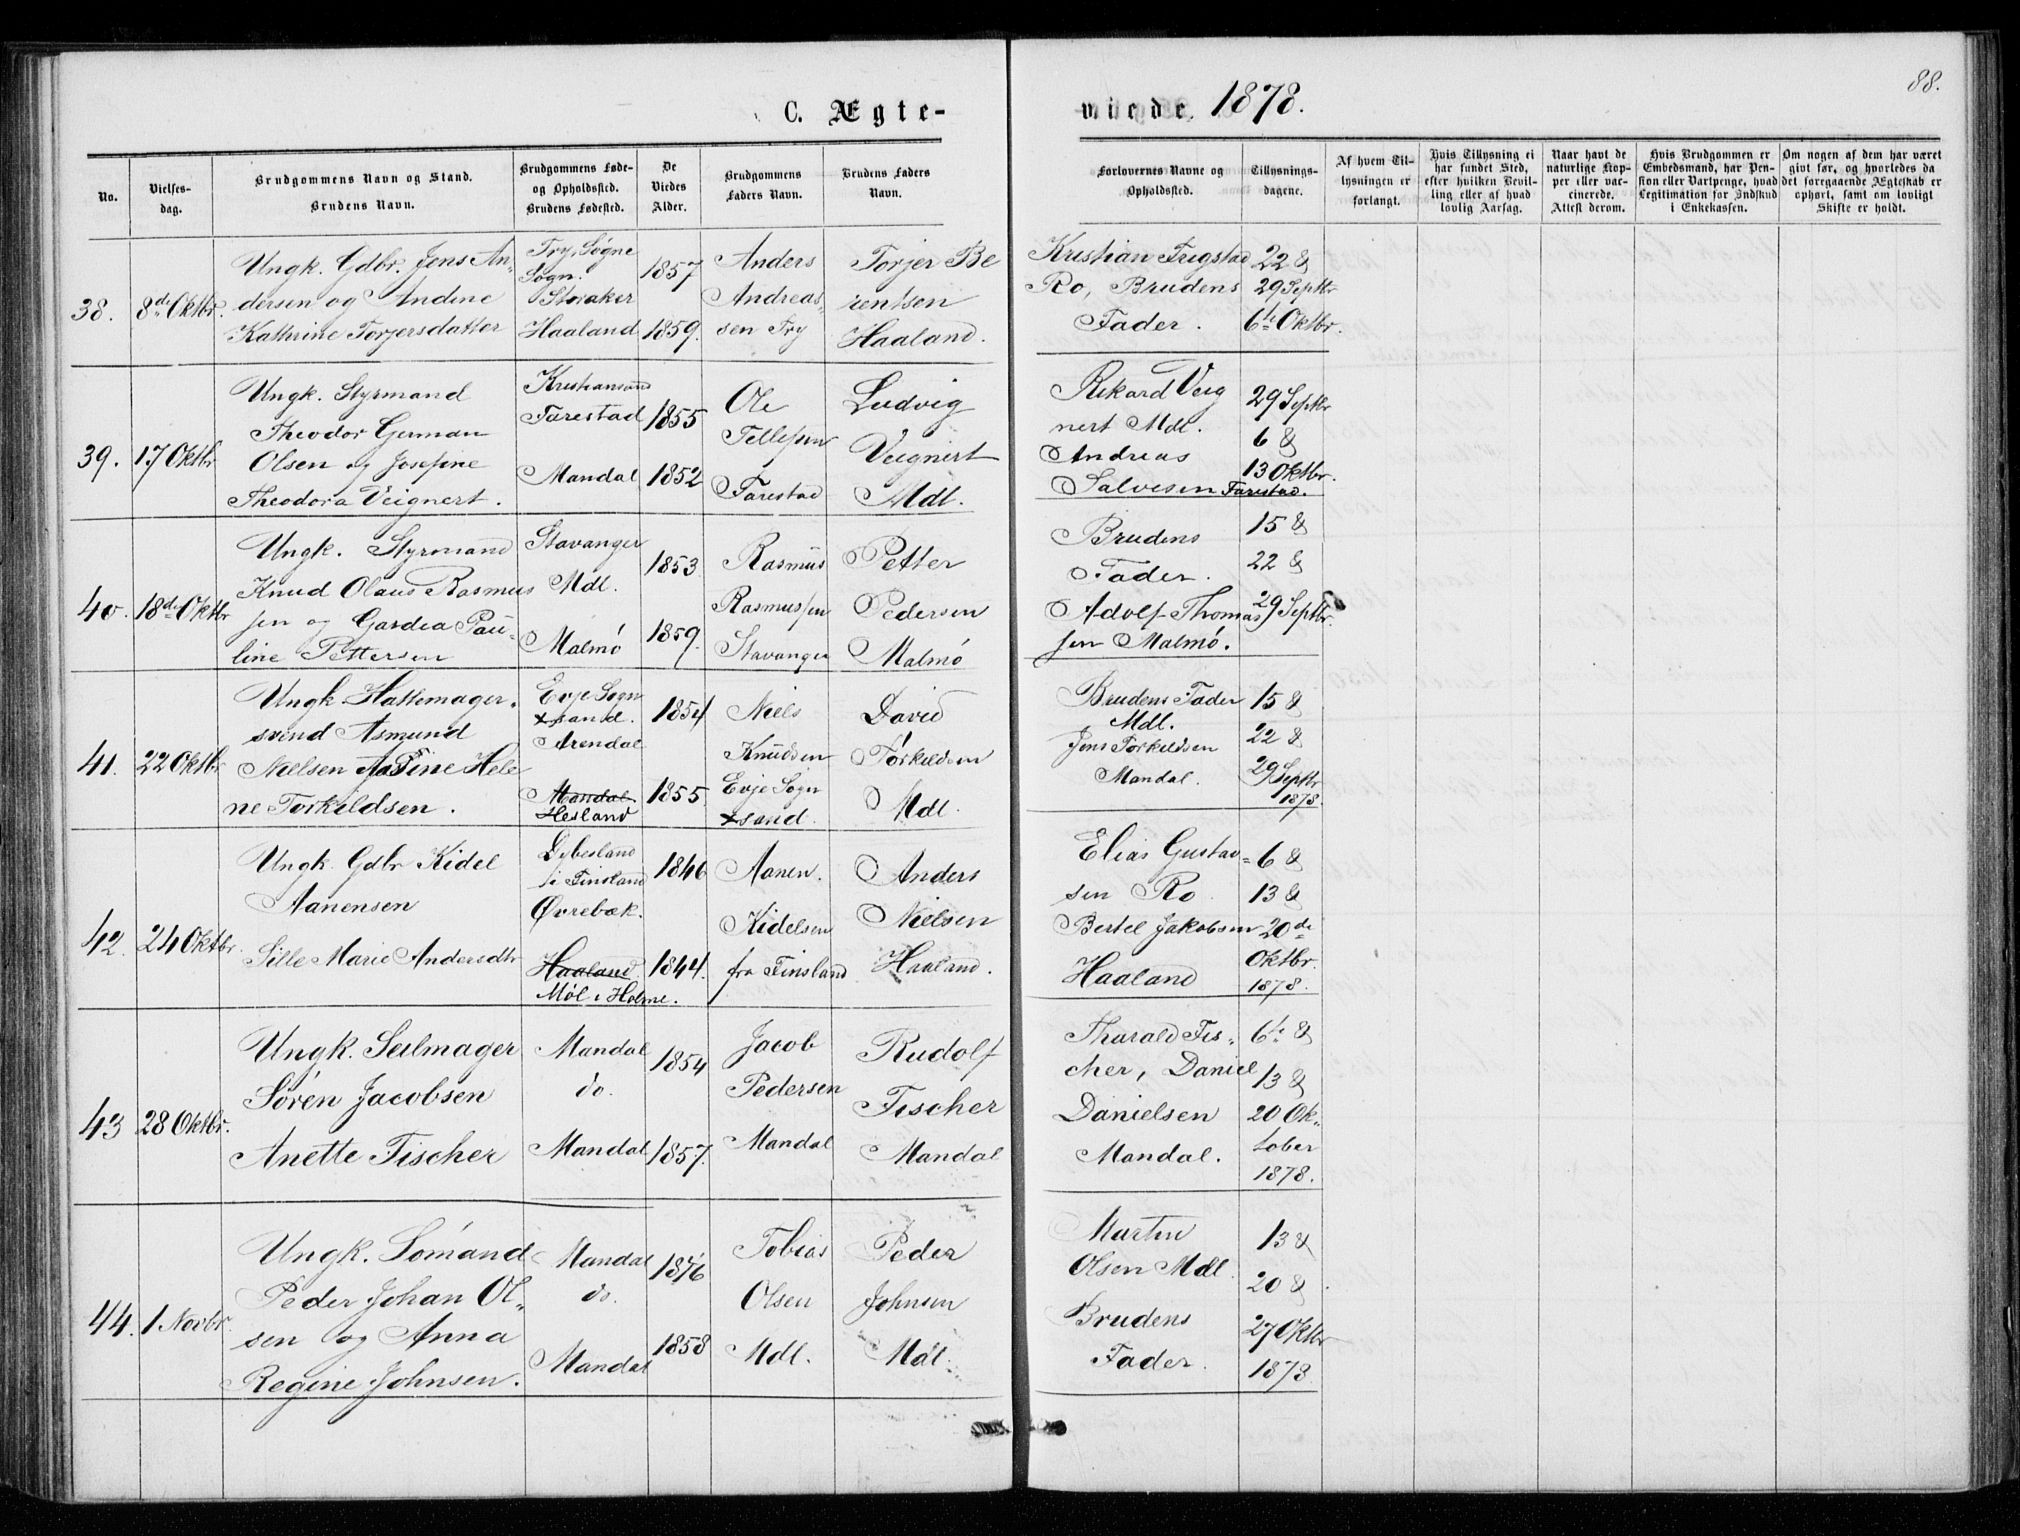 88.
C. Ægte-
viede 1878.
No.
Vielses-
dag.
Brudgommens Navn og Stand.
Brudens Navn.
Brudgommens Føde-
og Opholdssted.
Brudens Fødested.
De
Viedes
Alder.
Brudgommens
Faders Navn.
Brudens Faders
Navn.
Forlovernes Navne og
Opholdssted.
Tillysnings-
dagene.
Af hvem Til-
lysningen er
forlangt.
Hvis Tillysning ei
har fundet Sted,
efter hvilken Bevil-
ling eller af hvad
lovlig Aarsag.
Naar havt de
naturlige Kop-
per eller vac-
cinerede.
Attest derom.
Hvis Brudgommen er
Embedsmand, har Pen-
sion eller Vartpenge, hvad
Legitimation for Indskud
i Enkekassen.
Om nogen af dem har været
gift før, og hvorledes da
det foregaaende Ægteskab er
ophørt, samt om lovligt
Skifte er holdt.
38.
8de Oktbr.
Ungk. Gdbr. Jens An-
dersen og Andine
Kathrine Torjersdatter
Try, Søgne
Sogn.
Storaker
Haaland
1857
1859.
Anders
Andreas-
sen Try
Torjer Be
rentsen
Haaland.
Kristian Frigstad
Ro, Brudens
Fader.
22 &
29 Septbr
6te Oktbr.
39.
17 Oktbr
Ungk. Styrmand
Theodor German
Olsen og Josefine
Theodora Veignert.
Kristiansand
Tarestad
Mandal
1855
1852
Ole
Tellefsen
Tarestad
Ludvig
Veignert
Mdl.
Rikard Veig
nert Mdl.
Andreas
Salvesen Tarestad.
29 Septbr
6 &
13 Oktbr.
40.
18de Oktbr
Ungk. Styrmand
Knud Olaus Rasmus
sen og Gardea Pau-
line Pettersen
Stavanger
Mdl.
Malmø
1853
1859.
Rasmus
Rasmussen
Stavanger
Petter
Pedersen
Malmø
Brudens
Fader.
Adolf Thomas
sen Malmø.
15 &
22 &
29 Septbr.
41.
22 Oktbr
Ungk Hattemager-
svend Asmund
Nielsen og Tine Hele
ne Torkeldsen.
Evje Sogn
xsand.
Arendal
Mandal
Hesland
1854
1855
Niels
Knudsen
Evje Sogn
xsand.
David
Torkeldsen
Mdl.
Brudens Fader
Mdl.
Jens Torkeldsen
Mandal.
15 &
22 &
29 Septbr
1878.
42.
24 Oktbr.
Ungk. Gdbr Kidel
Aanensen
Sille Marie Andersdtr
Lybesland
i Finsland
Øvrebæk.
Haaland
Møl i Holme.
1846
1844.
Aanen.
Kidelsen
fra Finsland
Anders
Nielsen
Haaland.
Elias Gustav-
sen Ro.
Bertel Jakobsen
Haaland
6 &
13 &
20de
Oktbr.
1878.
43
28 Oktbr.
Ungk. Seilmager
Søren Jacobsen
Anette Fischer
Mandal
do.
Mandal
1854
1857.
Jacob
Pedersen
Mandal
Rudolf
Fischer
Mandal
Tharald Fis-
cher, Daniel
Danielsen
Mandal.
6te &
13 &
20 Ok-
tober
1878.
44.
1 Novbr.
Ungk. Sømand
Peder Johan Ol-
sen og Anna
Regine Johnsen.
Mandal
do.
Mandal
1858
Tobias
Olsen
Mdl.
Peder
Johnsen
Mdl.
Martin
Olsen Mdl.
Brudens
Fader.
13 &
20 &
27 Oktbr
1878